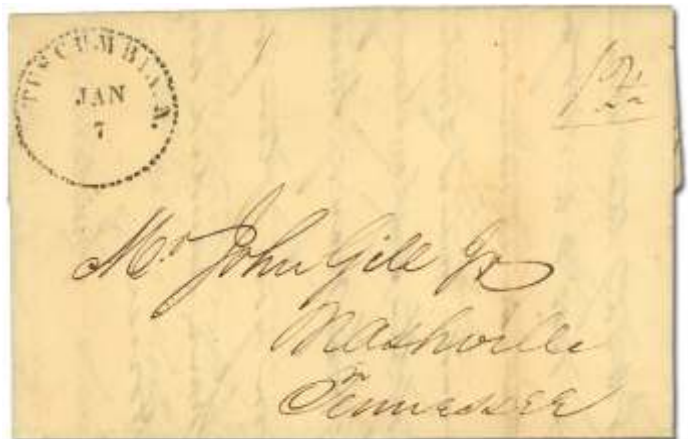 TUSCUMBIA A.
JAN
7
12½
Mr John Gill Jr
Nashville
Tennessee